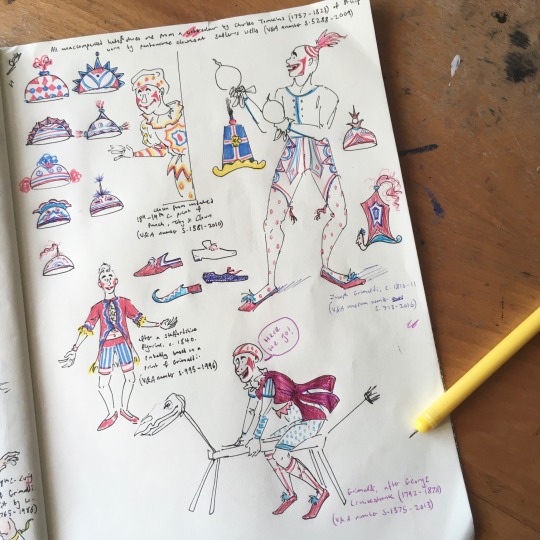 All unaccompanied hats/shoes are from a watercolour by Charles Tomkins (1757-1823) of props
worn by pantomime clowns at Sadler's Wells (V&A number S.5288-2009)
Clown from undated
18th-19th C print of
Punch, Toby & Clown
(V&A number S.1581-2010)
after a Staffordshire
figurine, c. 1840.
Probably based on a
print of Grimaldi.
(V&A number S.995-1996)
Joseph Grimaldi, c. 1810-11
(V&A museum number
S.713-2016)
Here
we go!
Grimaldi, after George
Cruickshank (1792-1878)
(V&A number S.1375-2013)
Grimaldi